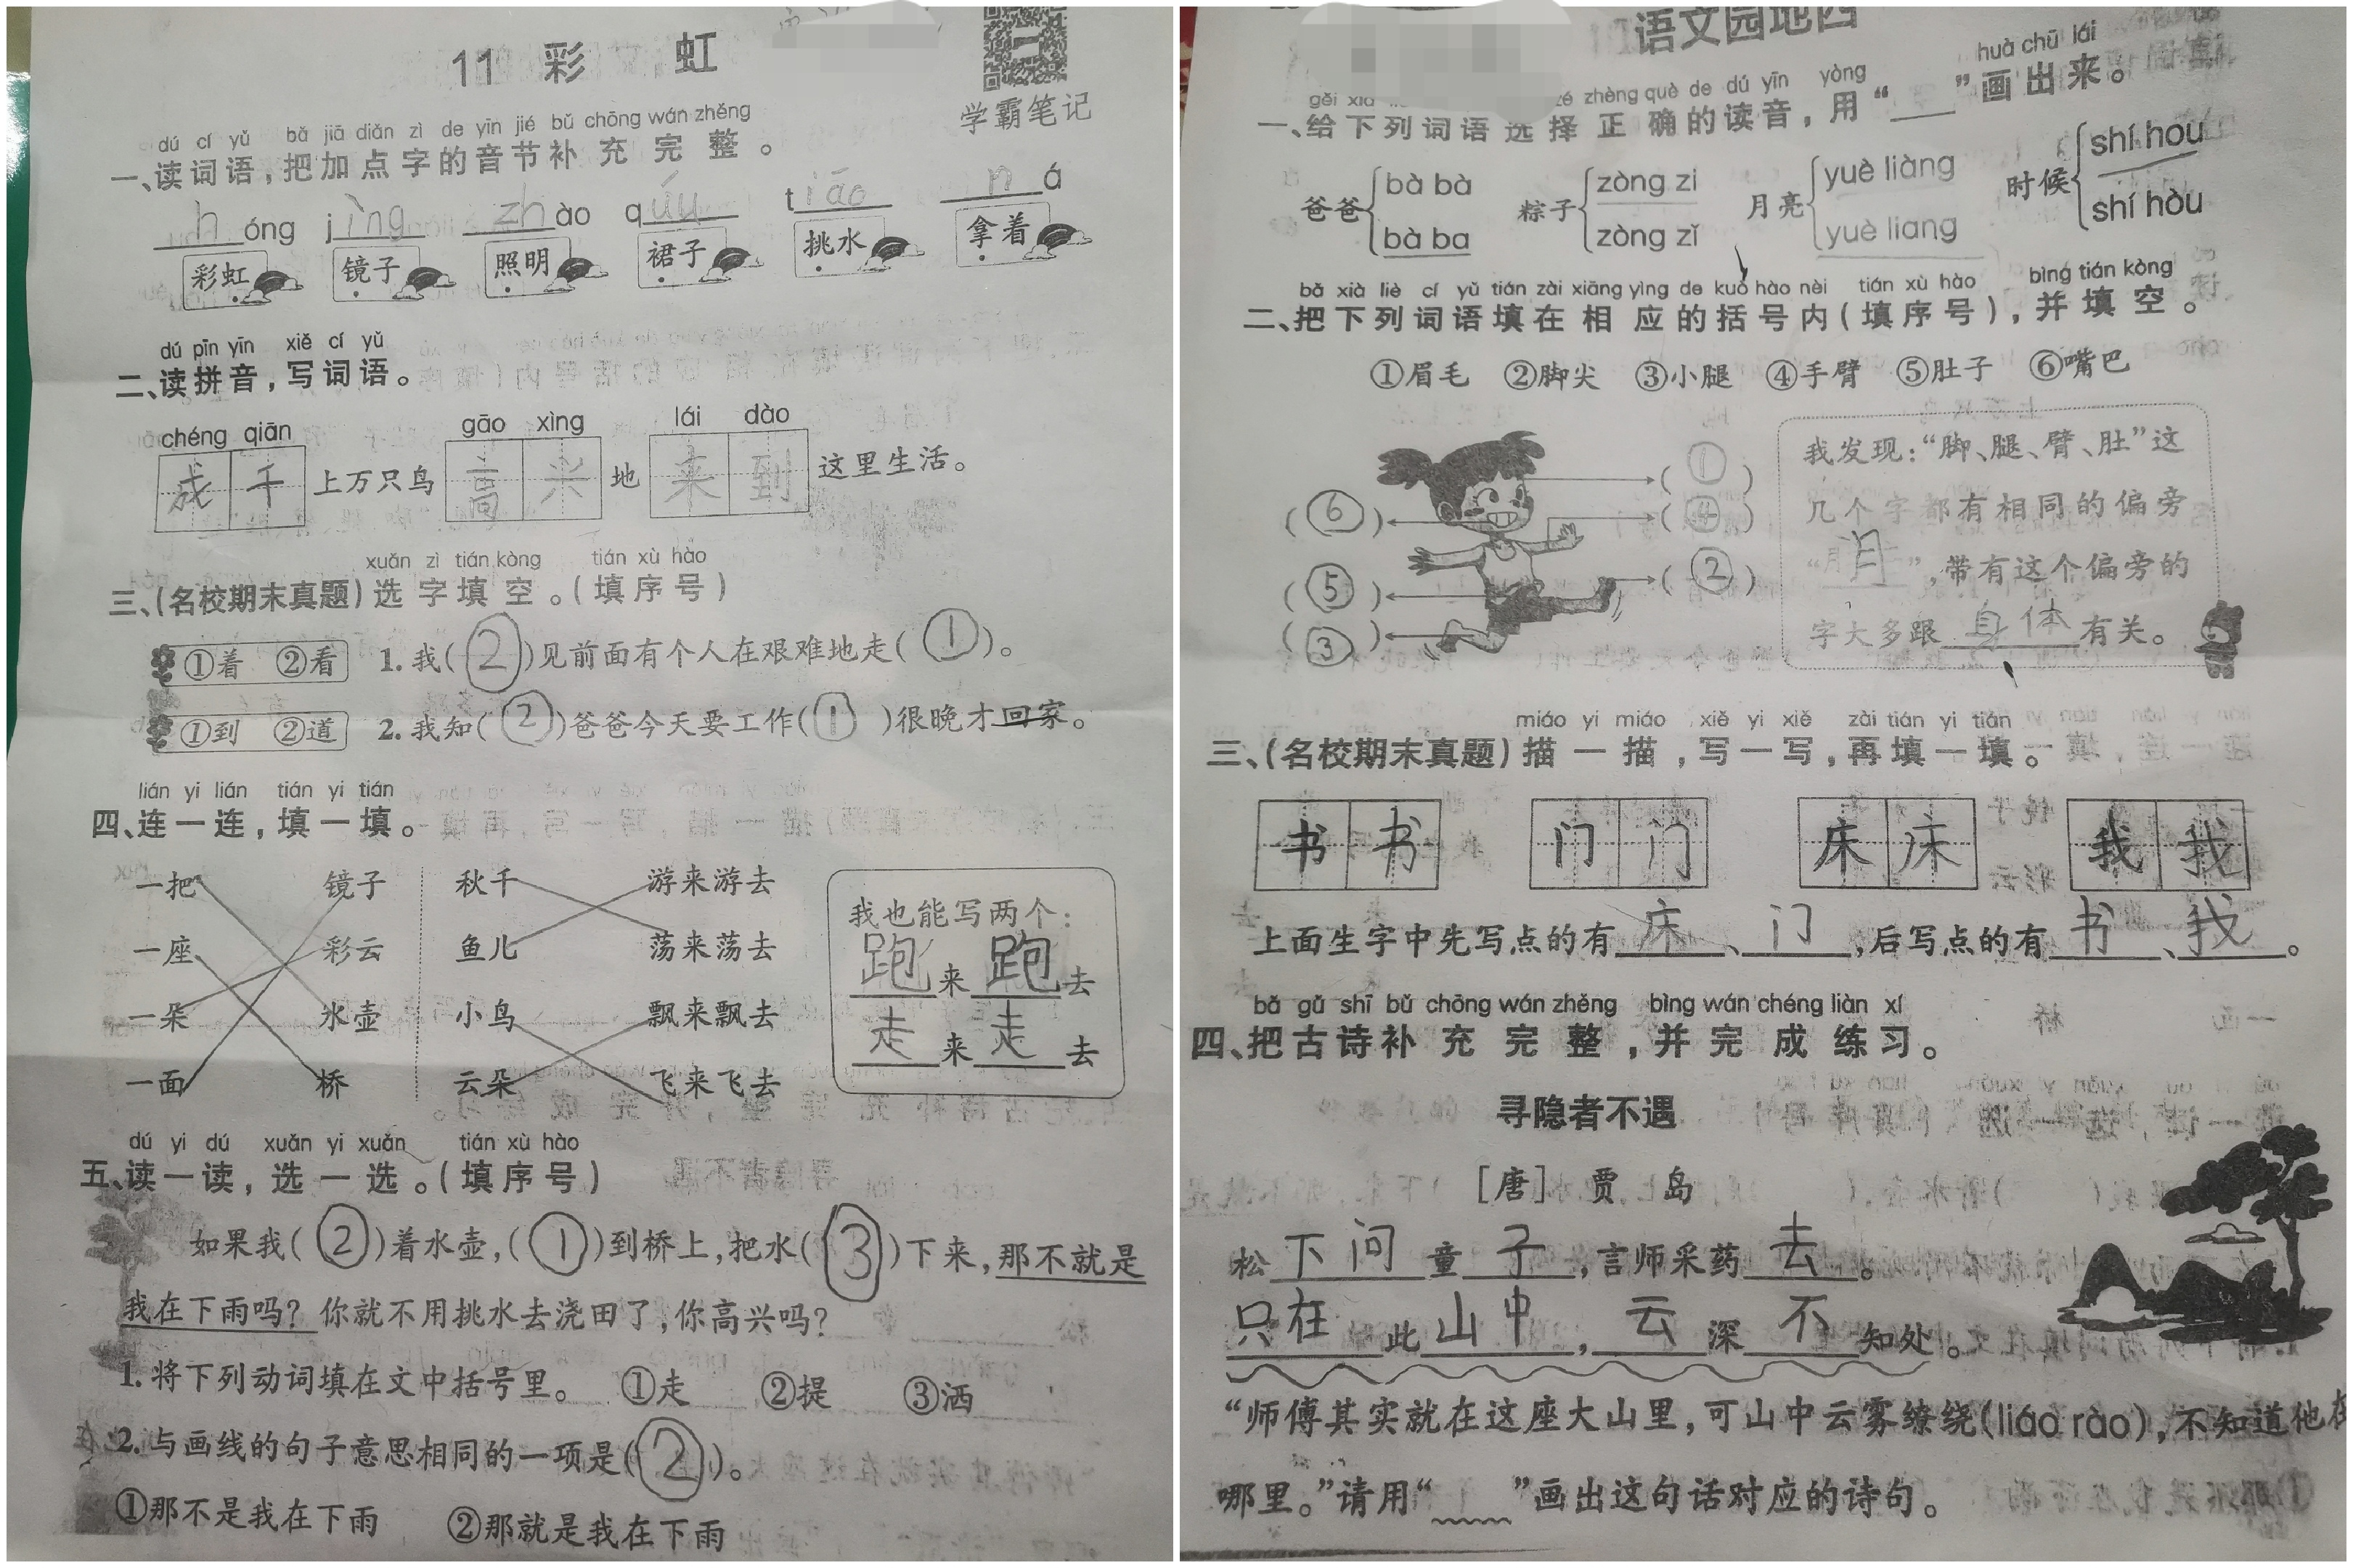 11 彩 虹
学霸笔记
dú cí yǔ bǎ jiā diǎn zì de yīn jié bǔ chōng wán zhěng
一、读词语,把加点字的音节补充完整。
hóng jìng zhào qún tiāo ná
彩虹 镜子 照明 裙子 挑水 拿着
dú pīn yīn xiě cí yǔ
二、读拼音,写词语。
chéng qiān gāo xìng lái dào
成千上万只鸟高兴地来到这里生活。
xuǎn zì tián kòng tián xù hào
三、(名校期末真题)选字填空。(填序号)
①着 ②看 1. 我(②)见前面有个人在艰难地走(①)。
①到 ②道 2. 我知(②)爸爸今天要工作(①)很晚才回家。
lián yi lián tián yi tián
四、连一连,填一填。
一把 镜子 秋千 游来游去
一座 彩云 鱼儿 荡来荡去
一朵 水壶 小鸟 飘来飘去
一面 桥 云朵 飞来飞去
我也能写两个:
跑来跑去
走来走去
dú yi dú xuǎn yi xuǎn tián xù hào
五、读一读,选一选。(填序号)
如果我(②)着水壶,(①)到桥上,把水(③)下来,那不就是
我在下雨吗?你就不用挑水去浇田了,你高兴吗?
1. 将下列动词填在文中括号里。 ①走 ②提 ③洒
2. 与画线的句子意思相同的一项是(②)。
①那不是我在下雨 ②那就是我在下雨
语文园地四
gěi xià zé zhèng què de dú yīn yòng huà chū lái
一、给下列词语选择正确的读音,用“___”画出来。
爸爸 bà bà bà ba
粽子 zòng zi zòng zǐ
月亮 yuè liàng yuè liang
时候 shí hou shí hòu
bǎ xià liè cí yǔ tián zài xiāng yìng de kuò hào nèi tián xù hào bìng tián kòng
二、把下列词语填在相应的括号内(填序号),并填空。
①眉毛 ②脚尖 ③小腿 ④手臂 ⑤肚子 ⑥嘴巴
(①)
(⑥) (④)
(⑤) (②)
(③)
我发现:“脚、腿、臂、肚”这
几个字都有相同的偏旁
“月”,带有这个偏旁的
字大多跟身体有关。
miáo yi miáo xiě yi xiě zài tián yi tián
三、(名校期末真题)描一描,写一写,再填一填。
书书 门门 床床 我我
上面生字中先写点的有床、门,后写点的有书、我。
bǎ gǔ shī bǔ chōng wán zhěng bìng wán chéng liàn xí
四、把古诗补充完整,并完成练习。
寻隐者不遇
[唐] 贾 岛
松下问童子,言师采药去。
只在此山中,云深不知处。
“师傅其实就在这座大山里,可山中云雾缭绕(liáo rào),不知道他在
哪里。”请用“___”画出这句话对应的诗句。